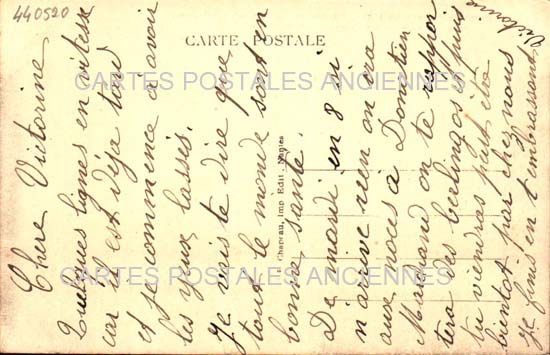 440520
CARTE POSTALE
CARTES POSTALES ANCIENNES
CARTES POSTALES ANCIENNES
Chapeau, Imp. Edit. Nantes
Chère Victorine
Quelques lignes en vitesse
car il est déja tard
et je commence à avoir
les yeux lassés.
Je vais te dire que
tout le monde sont en
bonne santé.
De mardi en 8 si
n'arrive rien on ira
aux noces à Domitien
Marchand on te rappor
tera des berlingos puis
tu viendras peut être
bientôt par chez nous
Je finis en t'embrassant
Victorine